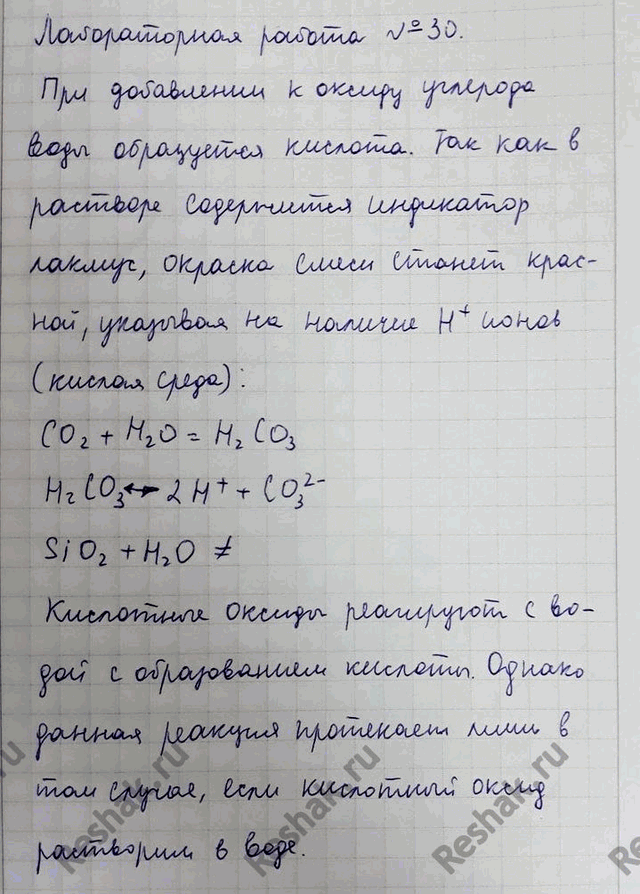 Лабораторная работа №30.
При добавлении к оксиду углерода
воды образуется кислота. Так как в
растворе содержится индикатор
лакмус, окраска смеси станет крас-
ной, указывая на наличие H⁺ ионов
(кислая среда):
CO₂ + H₂O = H₂CO₃
H₂CO₃ ↔ 2H⁺ + CO₃²⁻
SiO₂ + H₂O ≠
Кислотные оксиды реагируют с во-
дой с образованием кислоты. Однако
данная реакция протекает лишь в
том случае, если кислотный оксид
растворим в воде.
Reshak.ru
Reshak.ru
Reshak.ru